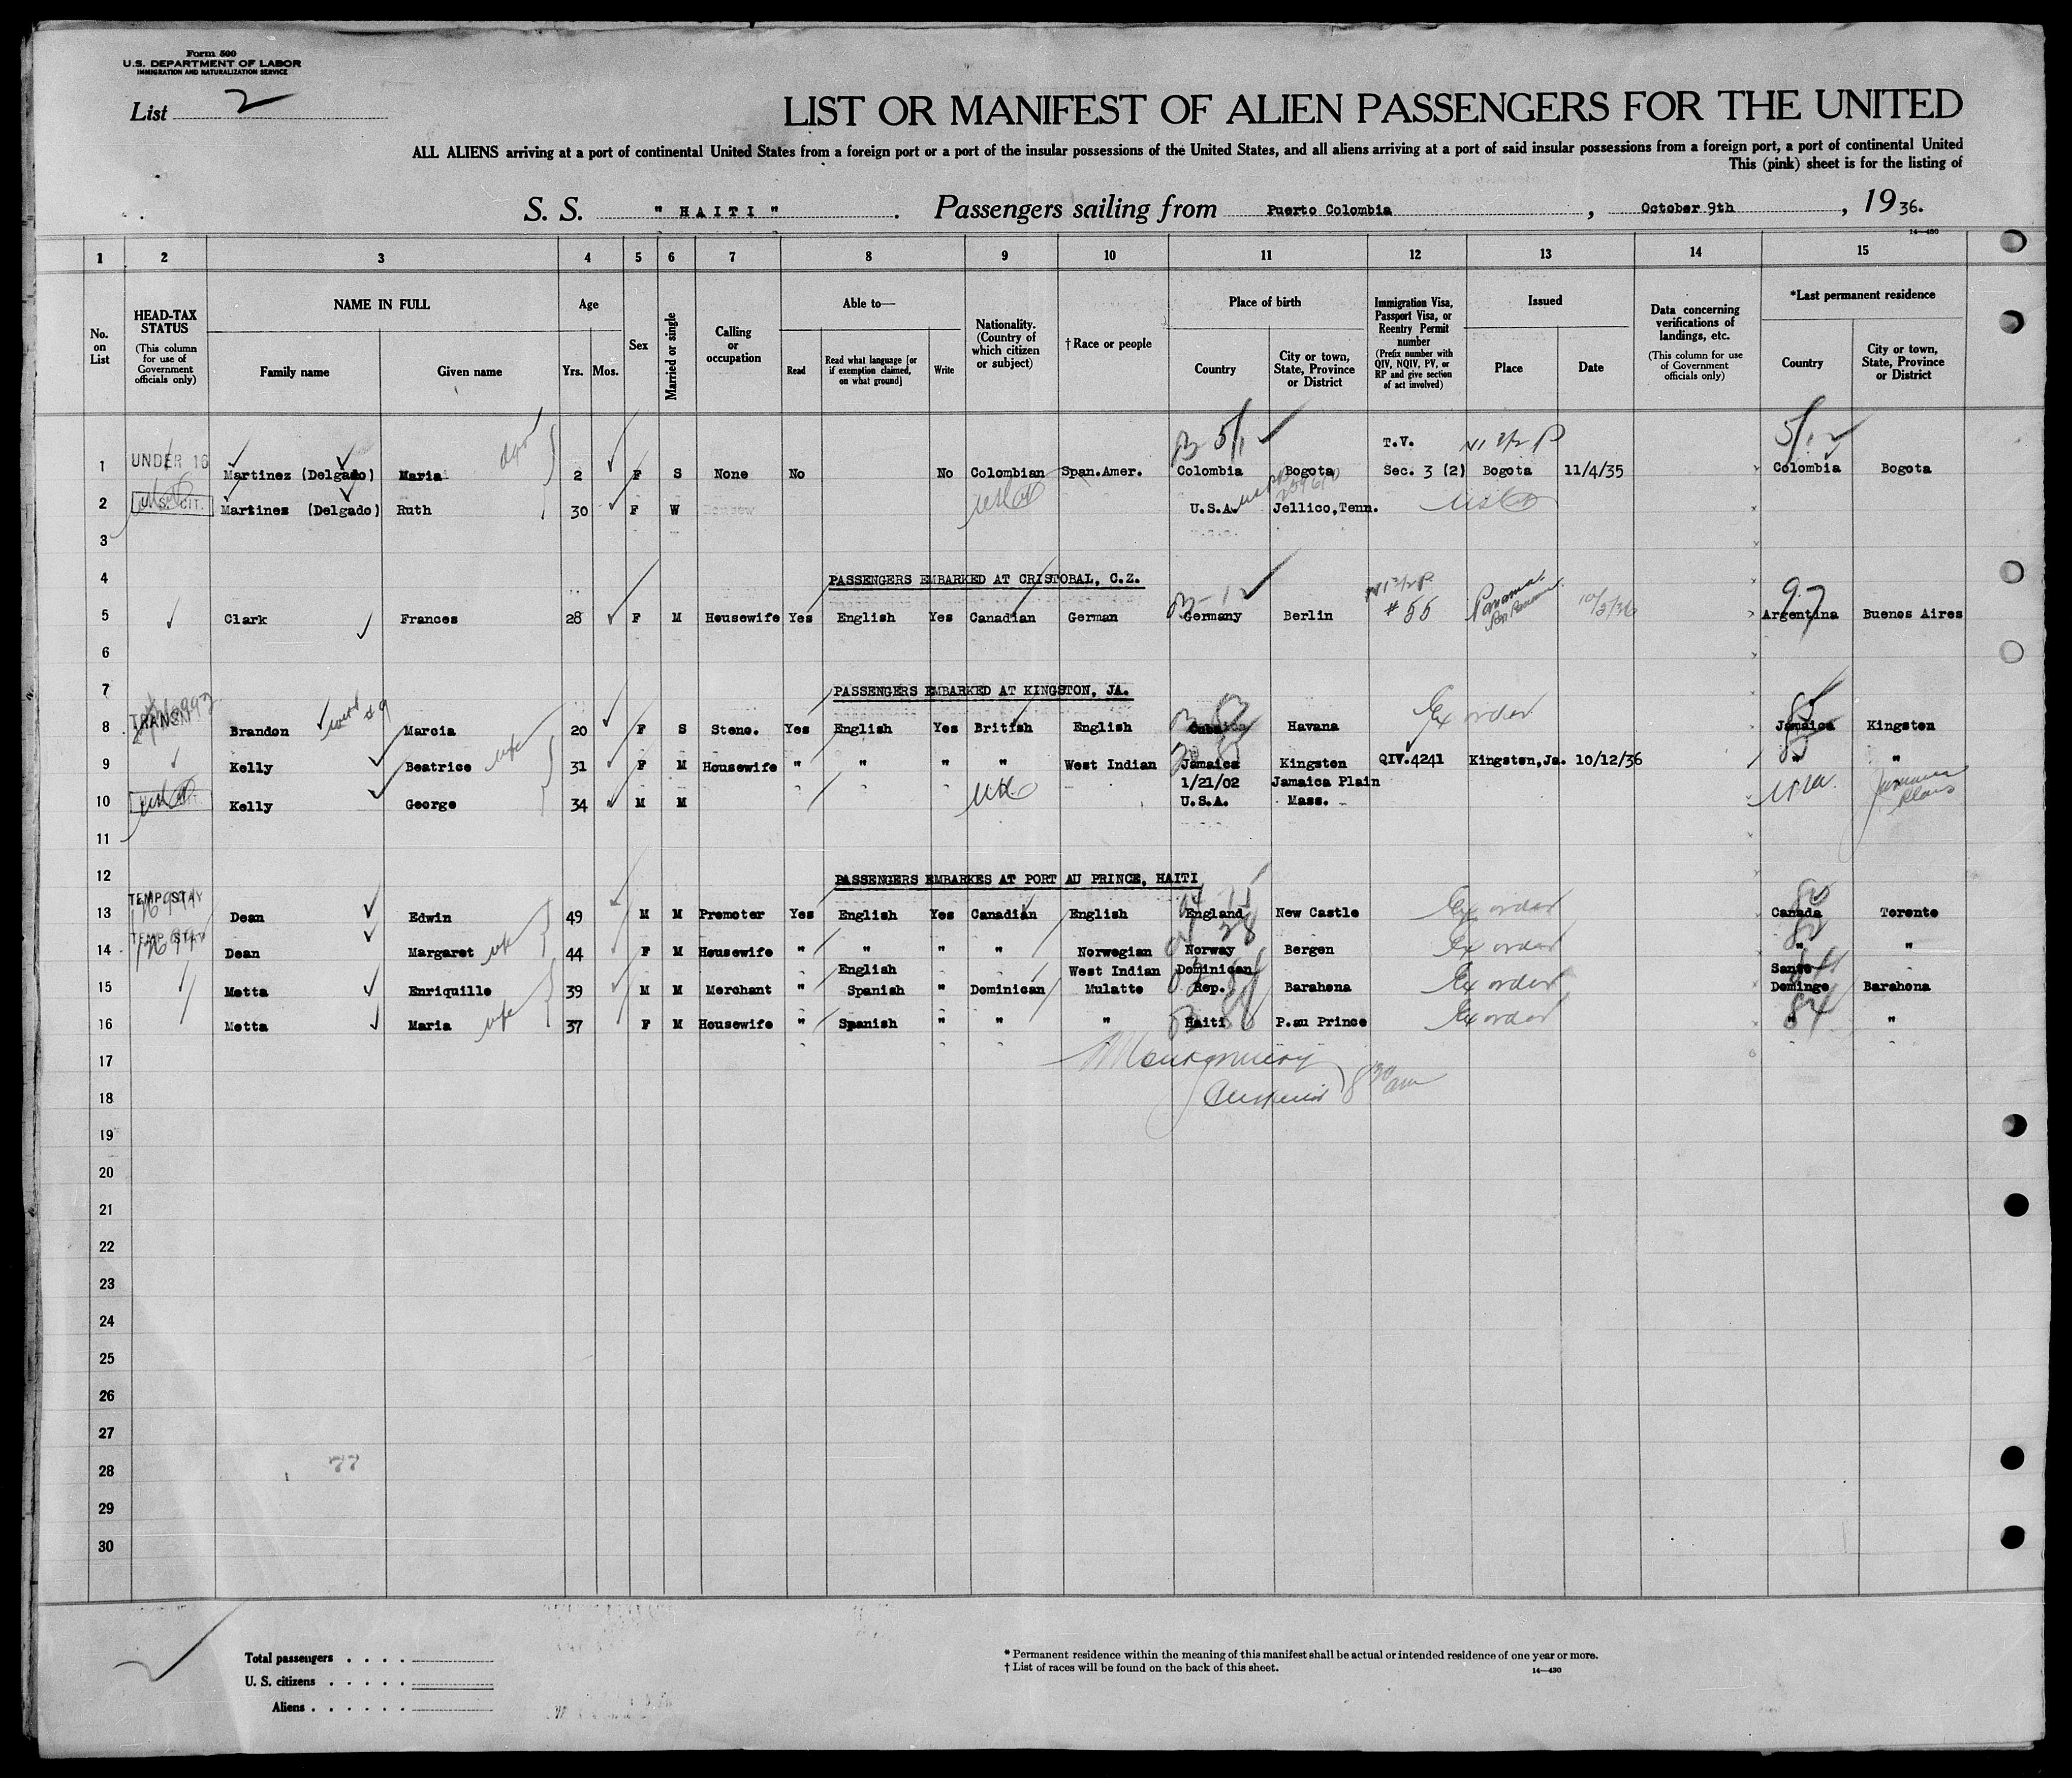 Form 500
U.S. DEPARTMENT OF LABOR
IMMIGRATION AND NATURALIZATION SERVICE
List 2
LIST OR MANIFEST OF ALIEN PASSENGERS FOR THE UNITED
ALL ALIENS arriving at a port of continental United States from a foreign port or a port of the insular possessions of the United States, and all aliens arriving at a port of said insular possessions from a foreign port, a port of continental United
This (pink) sheet is for the listing of
S. S. "HAITI" . Passengers sailing from Puerto Colombia , October 9th , 1936.
14—430
1 2 3 4 5 6 7 8 9 10 11 12 13 14 15
No. on List
HEAD-TAX STATUS (This column for use of Government officials only)
NAME IN FULL
Family name Given name
Age
Yrs. Mos.
Sex
Married or single
Calling or occupation
Able to—
Read Read what language [or if exemption claimed, on what ground] Write
Nationality. (Country of which citizen or subject)
†Race or people
Place of birth
Country City or town, State, Province or District
Immigration Visa, Passport Visa, or Reentry Permit number (Prefix number with QIV, NQIV, PV, or RP and give section of act involved)
Issued
Place Date
Data concerning verifications of landings, etc. (This column for use of Government officials only)
*Last permanent residence
Country City or town, State, Province or District
B 5/1 T.V. N1 3/2 P 5/12
1 UNDER 16 Martinez (Delgado) Maria 2 F S None No No Colombian Span.Amer. Colombia Bogota Sec. 3 (2) Bogota 11/4/35 Colombia Bogota
2 U.S. CIT. Martinez (Delgado) Ruth 30 F W U.S.A. Jellico,Tenn.
3
4 PASSENGERS EMBARKED AT CRISTOBAL, C.Z.
5 Clark Frances 28 F M Housewife Yes English Yes Canadian German Germany Berlin #55 Panama 10/2/36 Argentina Buenos Aires
6
7 PASSENGERS EMBARKED AT KINGSTON, JA.
8 TRANSIT Brandon #9 Marcia 20 F S Steno. Yes English Yes British English Havana Ex order Jamaica Kingston
9 Kelly Beatrice wife 31 F M Housewife " " " " West Indian Jamaica Kingston QIV.4241 Kingston,Ja. 10/12/36 " "
1/21/02 Jamaica Plain
10 Kelly George 34 M M U.S.A. Mass. USA Jamaica Plains
11
12 PASSENGERS EMBARKES AT PORT AU PRINCE, HAITI
13 TEMP STAY Dean Edwin 49 M M Promoter Yes English Yes Canadian English England New Castle Ex order Canada Toronto
14 TEMP STAY Dean Margaret wife 44 F M Housewife " " " " Norwegian Norway Bergen Ex order " "
English West Indian Dominican Santo
15 Motta Enriquille 39 M M Merchant " Spanish " Dominican Mulatto Rep. Barahona Ex order Domingo Barahona
16 Motta Maria wife 37 F M Housewife " Spanish " " " Haiti P.au Prince Ex order " "
17 Montgomery
18 8 30 am
19
20
21
22
23
24
25
26
27
28 77
29
30
Total passengers . . . .
U. S. citizens . . . . .
Aliens . . . . . .
* Permanent residence within the meaning of this manifest shall be actual or intended residence of one year or more.
† List of races will be found on the back of this sheet. 14—430